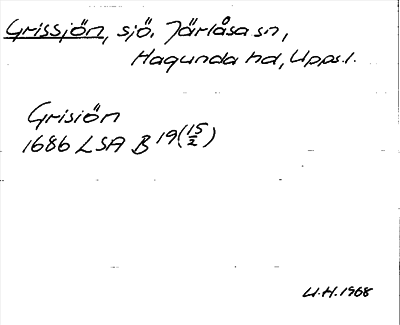 Grissjön, sjö. Järlåsa sn,
Hagunda hd, Upps.l.
Grisiön
1686 LSA B 19(15/2)
U.H. 1968